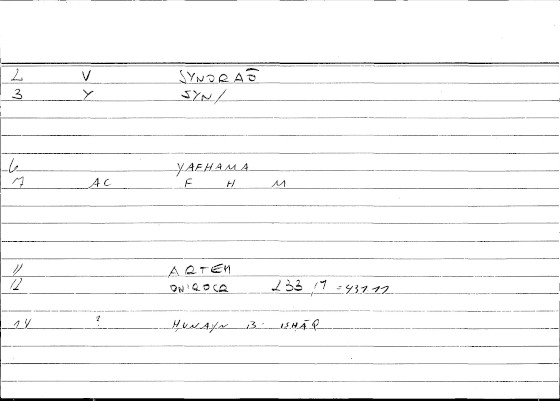 2 V SYNORAŌ
3 Y SYN/
6 YAFHAMA
7 AC F H M
11 ARTEM
12 ONIROCR 233,17 = 43111
14 ? HUNAYN B. ISHĀQ